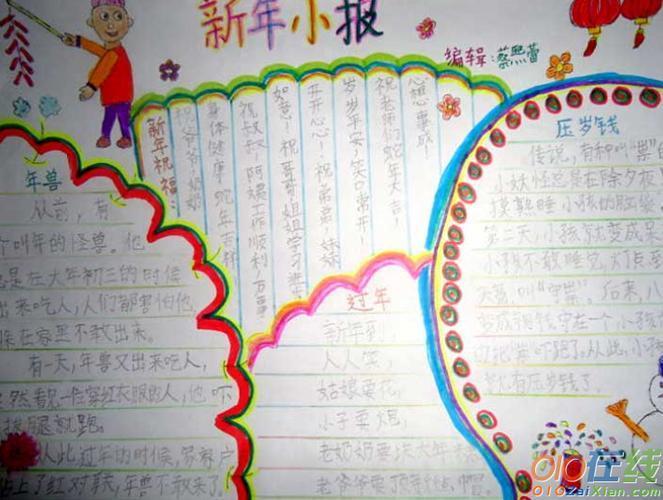 新年小报
编辑:蔡熙蕾
新年祝福:
祝爷爷!奶奶
身体健康 蛇年吉祥
祝叔叔!阿姨工作顺利!万事
如意!祝哥哥!姐姐学习进步
开开心心!祝弟弟!妹妹
岁岁平安!笑口常开!
祝老师们蛇年大吉!
心想事成!
年兽
从前,有
个叫年的怪兽。他
总是在大年初三的时候
出来吃人,人们都害怕他,
躲在家里不敢出来。
有一天,年兽又出来吃人,
突然看见一位穿红衣服的人,他吓
拔腿就跑。
从此过年的时候,家家户
贴上了红对联,年兽不敢来了。
过年
新年到,
人人笑,
姑娘要花,
小子要炮,
老奶奶要块大年糕
老爷爷要顶毡帽
压岁钱
传说,有种叫“祟”的
小妖怪总是在除夕夜
摸熟睡小孩的脑袋
第二天,小孩就变成呆
小孩不敢睡觉,灯点至
天亮,叫“守祟”。后来,八
变成铜钱守在一个小孩
把“祟”吓跑了。从此,小孩
就有压岁钱了。
010在线
010ZaiXian.com